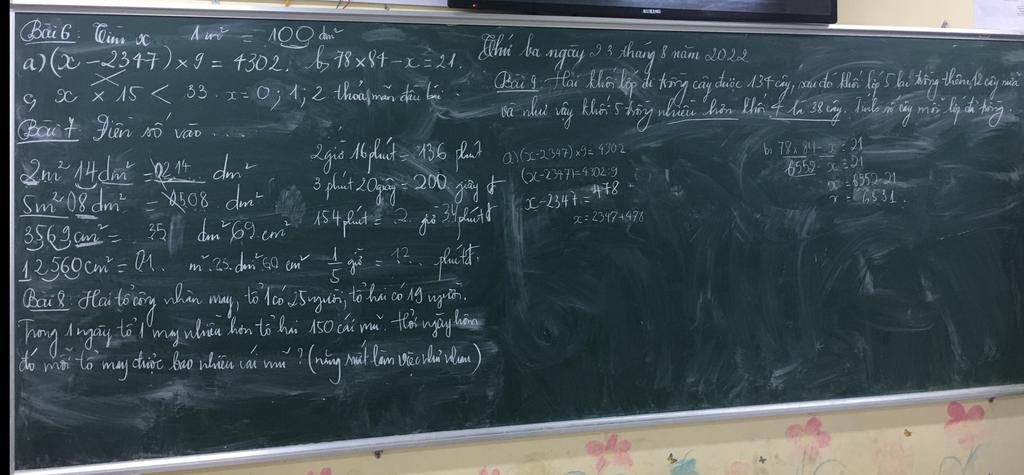 Bài 6: Tìm x 1m² = 100 dm²
a) (x - 2347) × 9 = 4302. b, 78 × 84 - x = 21.
c, x × 15 < 33 x = 0; 1; 2 thỏa mãn đầu bài.
Bài 7 Điền số vào ....
2m² 14dm² = 0214 dm²
5m² 08dm² = 0508 dm²
3569cm² = 35 dm² 69 cm²
12560cm² = 01 m² 25 dm² 60 cm²
2 giờ 16 phút = 136 phút
3 phút 20 giây = 200 giây
154 phút = 2 giờ 34 phút
1/5 giờ = 12 phút
Bài 8: Hai tổ công nhân may, tổ 1 có 25 người, tổ hai có 19 người.
Trong 1 ngày tổ 1 may nhiều hơn tổ hai 150 cái mũ. Hỏi ngày hôm
đó mỗi tổ may được bao nhiêu cái mũ? (năng suất làm việc như nhau)
Thứ ba ngày 23 tháng 8 năm 2022
Bài 9: Hai khối lớp đi trồng cây được 134 cây, sau đó khối lớp 5 lại trồng thêm cây nữa
và như vậy khối 5 trồng nhiều hơn khối 4 là 38 cây. Tính số cây mỗi lớp đã trồng.
a) (x - 2347) × 9 = 4302
(x - 2347) = 4302 : 9
x - 2347 = 478
x = 2347 + 478
b, 78 × 84 - x = 21
6552 - x = 21
x = 6552 - 21
x = 6531.